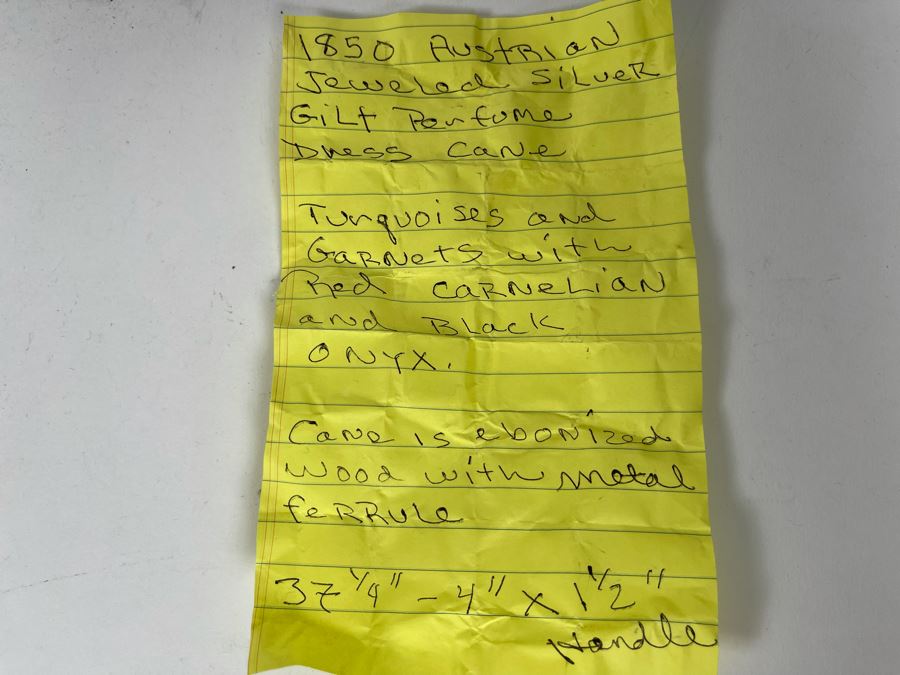 1850 Austrian
Jeweled Silver
Gilt Perfume
Dress Cane
Turquoises and
Garnets with
Red Carnelian
and Black
ONYX.
Cane is ebonized
wood with metal
ferrule
37 1/4" - 4" x 1 1/2"
Handle